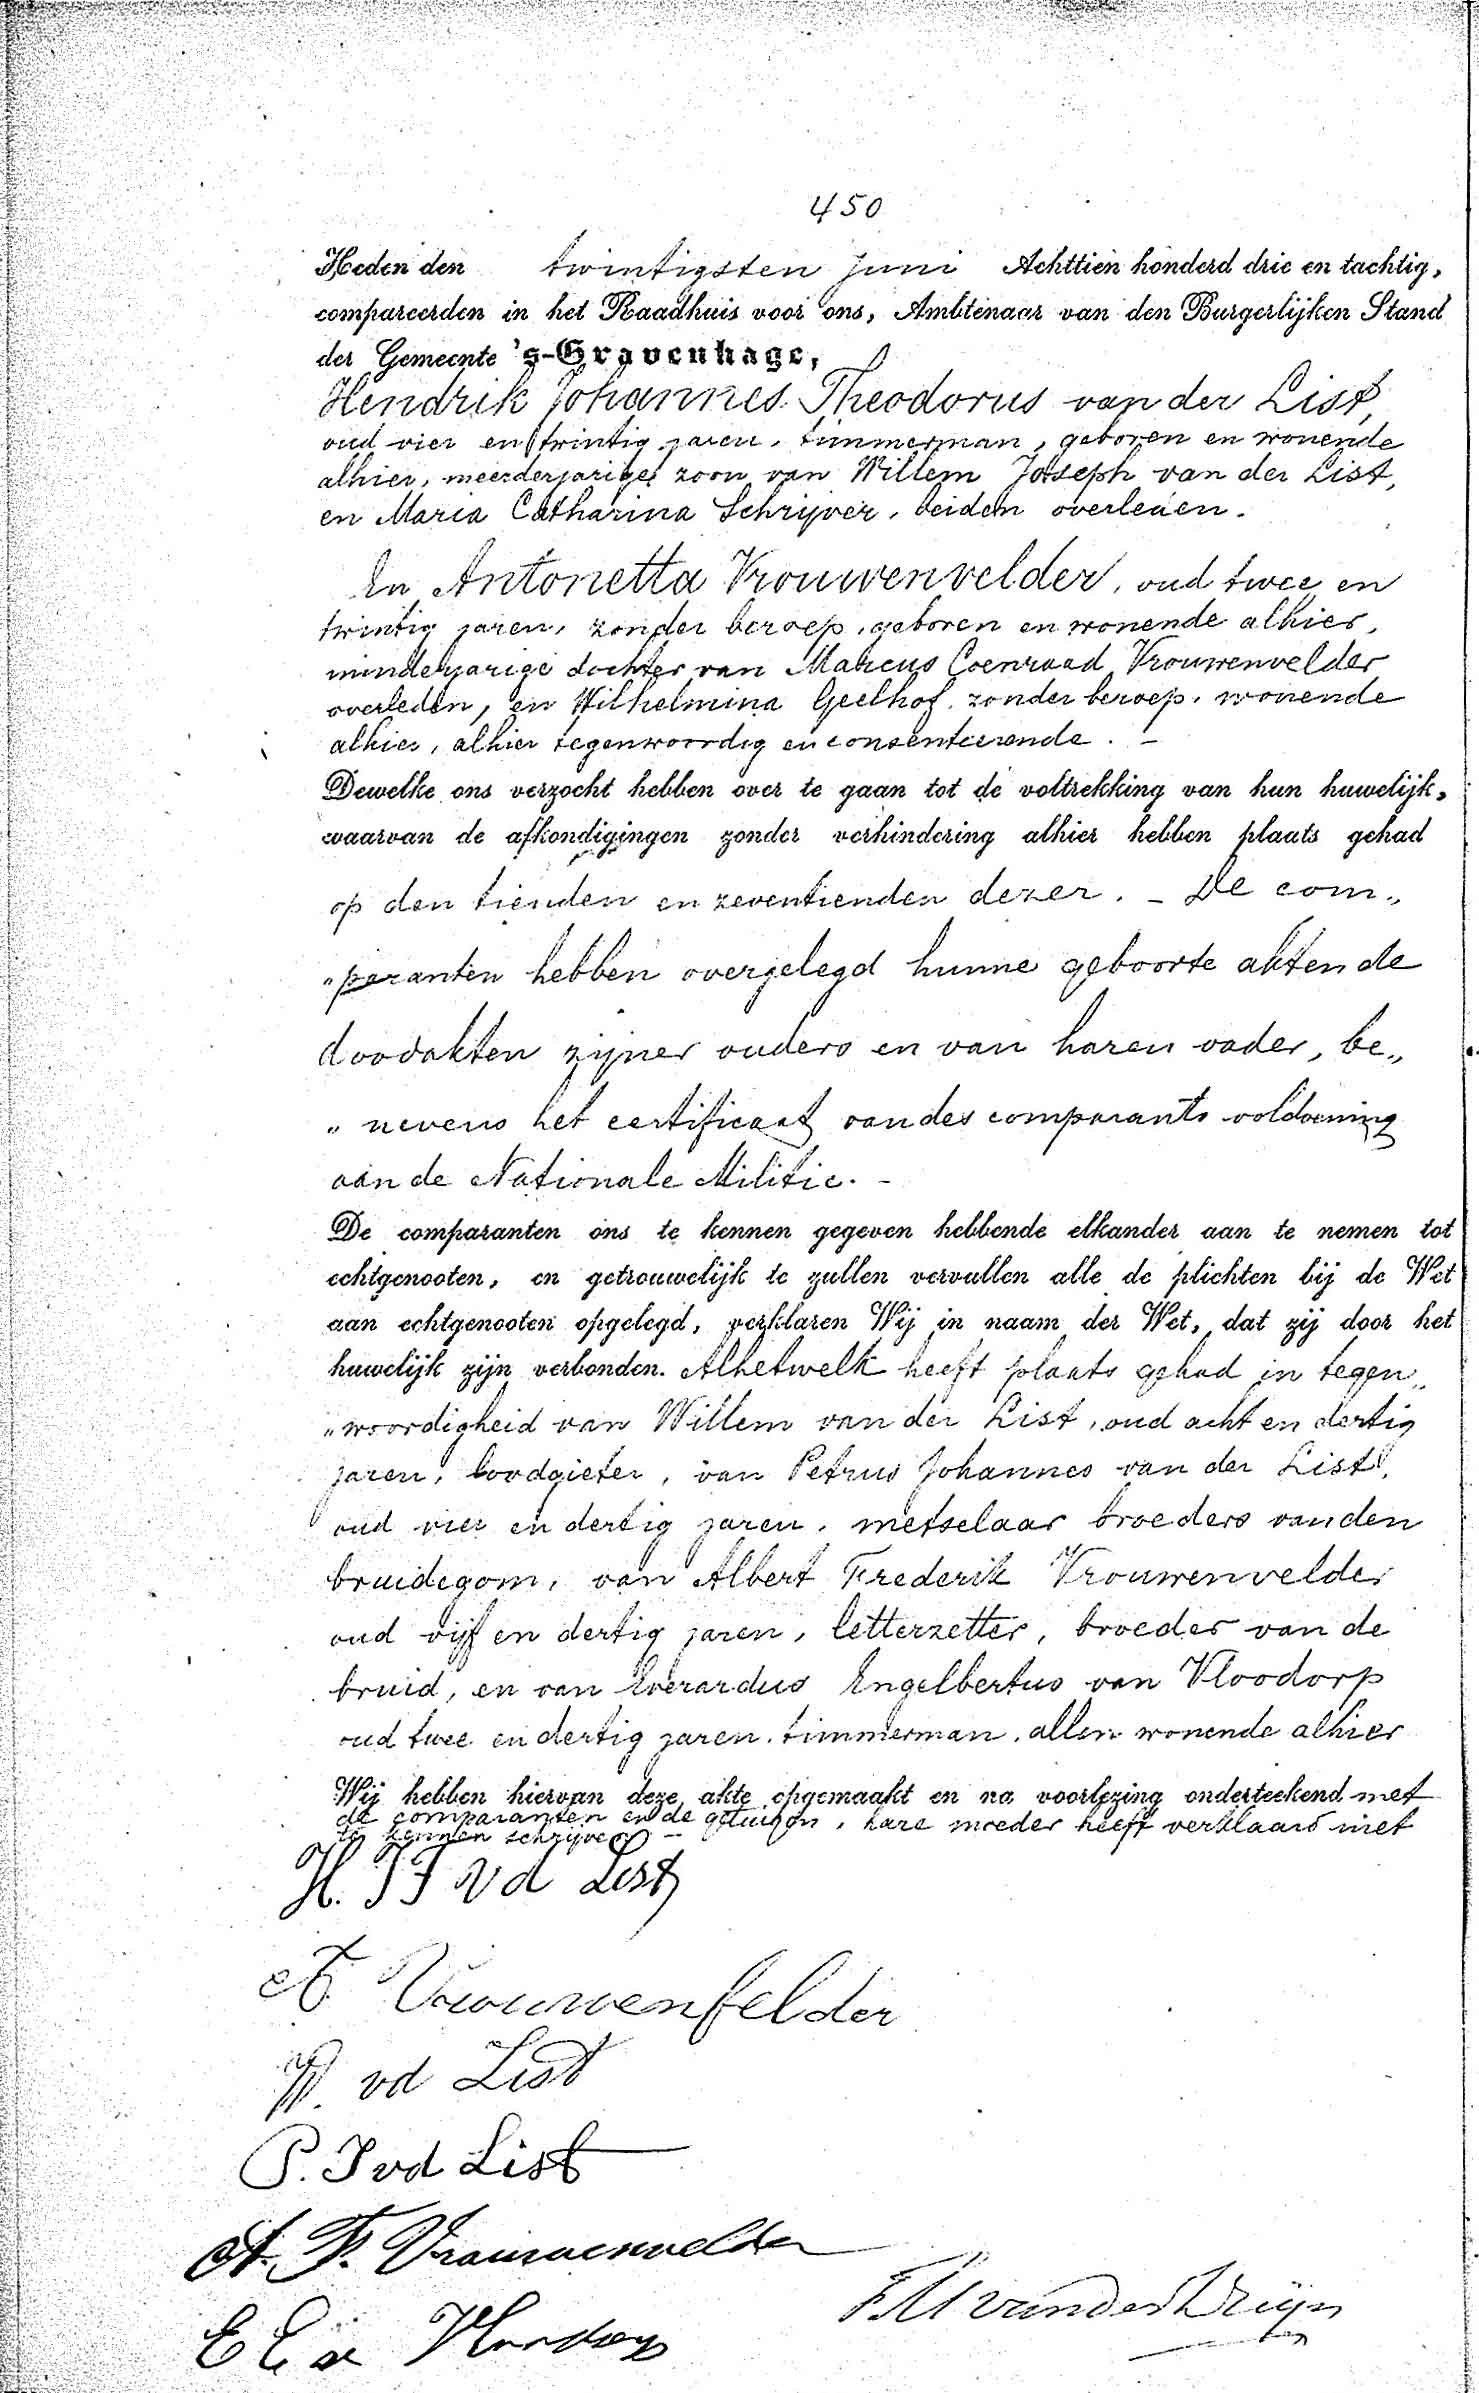 450
Heden den twintigsten Juni Achttien honderd drie en tachtig,
compareerden in het Raadhuis voor ons, Ambtenaar van den Burgerlijken Stand
der Gemeente 's-Gravenhage,
Hendrik Johannes Theodorus van der List,
oud vier en twintig jaren, timmerman, geboren en wonende
alhier, meerderjarige zoon van Willem Joseph van der List,
en Maria Catharina Schrijver, beiden overleden.
En Antonetta Vrouwenvelder, oud twee en
twintig jaren, zonder beroep, geboren en wonende alhier,
minderjarige dochter van Marcus Coenraad Vrouwenvelder
overleden, en Wilhelmina Geelhof, zonder beroep, wonende
alhier, alhier tegenwoordig en consenteerende. -
Dewelke ons verzocht hebben over te gaan tot de voltrekking van hun huwelijk,
waarvan de afkondigingen zonder verhindering alhier hebben plaats gehad
op den tienden en zeventienden dezer. - De com„
„paranten hebben overgelegd hunne geboorte akten de
doodakten zijner ouders en van haren vader, be„
„nevens het certificaat van des comparants voldoening
aan de Nationale Militie. -
De comparanten ons te kennen gegeven hebbende elkander aan te nemen tot
echtgenooten, en getrouwelijk te zullen vervullen alle de plichten bij de Wet
aan echtgenooten opgelegd, verklaren Wij in naam der Wet, dat zij door het
huwelijk zijn verbonden. Alhetwelk heeft plaats gehad in tegen„
„woordigheid van Willem van der List, oud acht en dertig
jaren, loodgieter, van Petrus Johannes van der List,
oud vier en dertig jaren, metselaar broeders van den
bruidegom, van Albert Frederik Vrouwenvelder
oud vijf en dertig jaren, letterzetter, broeder van de
bruid, en van Everardus Engelbertus van Vloodorp
oud twee en dertig jaren, timmerman, allen wonende alhier
Wij hebben hiervan deze akte opgemaakt en na voorlezing onderteekend met
de comparanten en de getuigen, hare moeder heeft verklaard niet
te kunnen schrijven -
H. J T v d List
A Vrouwenfelder
W. vd List
P. J vd List
A. F. Vrouwenvelder
E E v Vloodorp